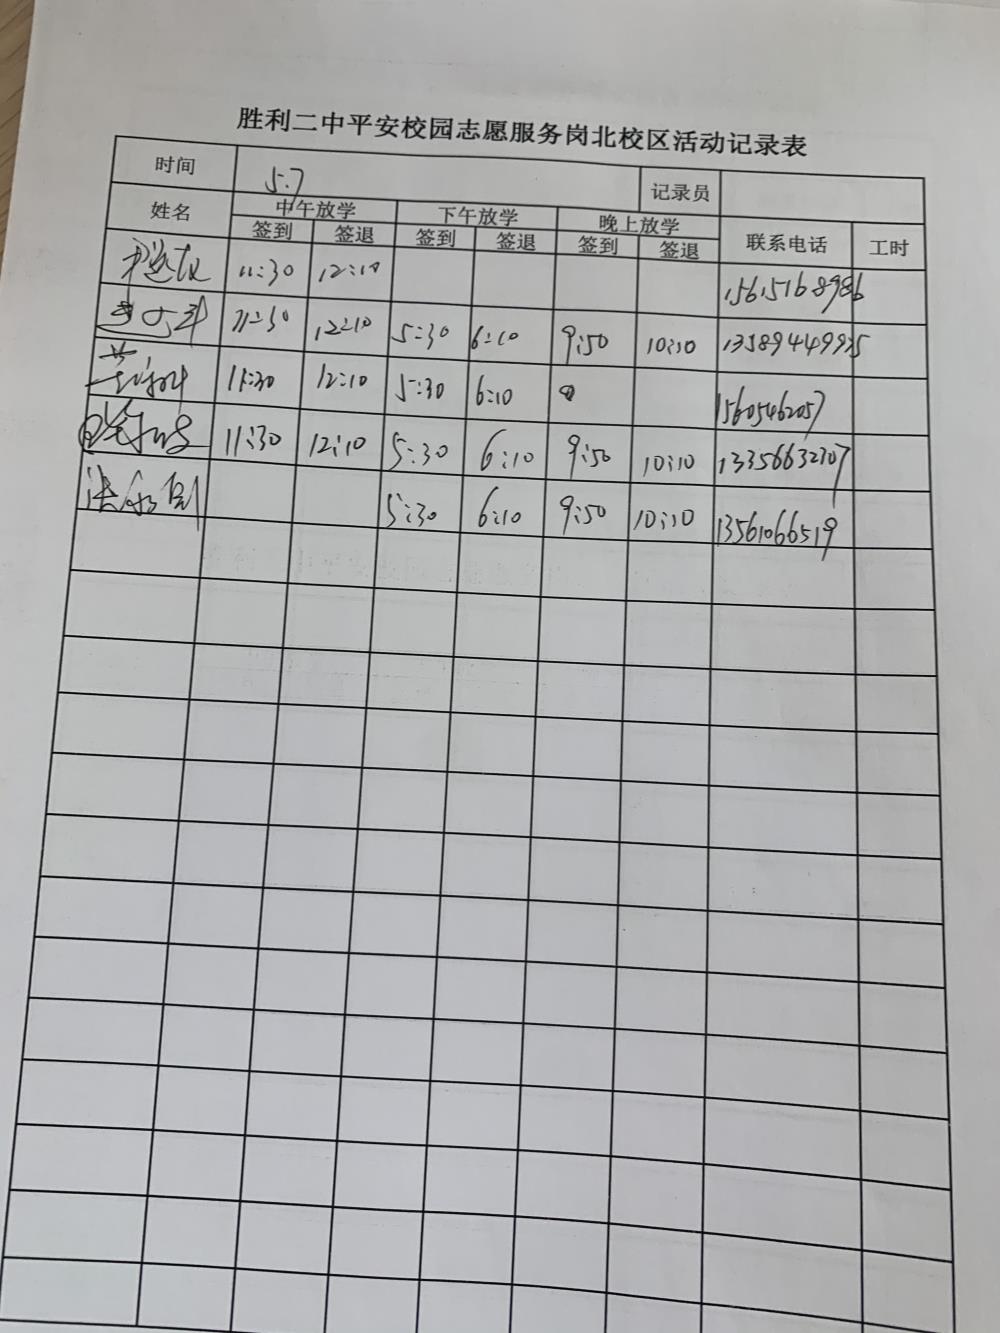 胜利二中平安校园志愿服务岗北校区活动记录表
时间 5.7 记录员
姓名 中午放学 下午放学 晚上放学 联系电话 工时
签到 签退 签到 签退 签到 签退
11:30 12:10 15615168986
11:30 12:10 5:30 6:10 9:50 10:10 13589449925
11:30 12:10 5:30 6:10 15605462057
11:30 12:10 5:30 6:10 9:50 10:10
5:30 6:10 9:50 10:10 13561066519